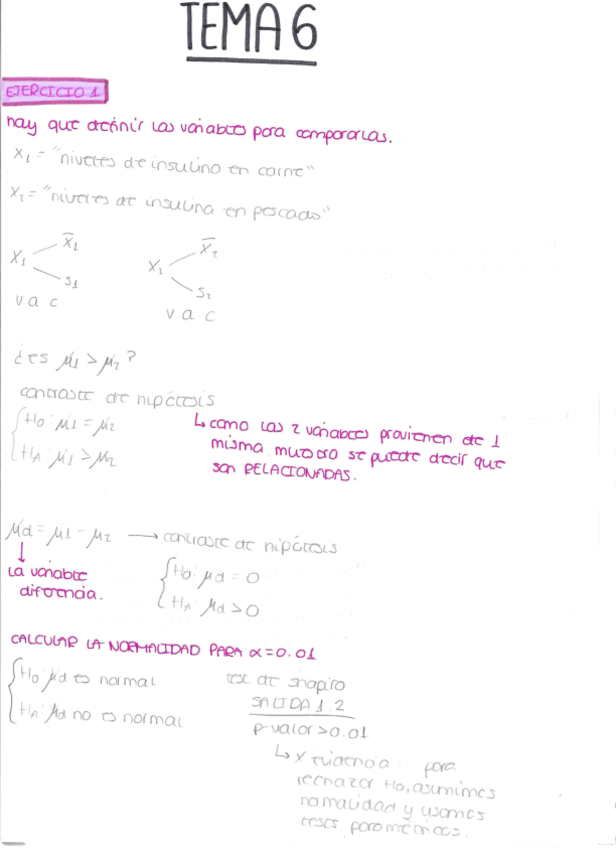 TEMA 6
EJERCICIO 1
hay que definir las variables para compararlas.
X₁ = "niveles de insulina en carne"
X₂ = "niveles de insulina en pescado"
X₁ x̄₁ s₁
v.a c
X₂ x̄₂ s₂
v a c
¿es μ₁ > μ₂?
contraste de hipótesis
H₀: μ1 = μ2
Hₐ: μ1 > μ2
↳ como las 2 variables provienen de 1
misma muestra se puede decir que
son RELACIONADAS.
μd = μ1 - μ2 → contraste de hipótesis
↓
la variable
diferencia.
H₀: μd = 0
Hₐ: μd > 0
CALCULAR LA NORMALIDAD PARA α = 0.01
H₀ μd es normal
Hₐ: μd no es normal
test de shapiro
SALIDA 1.2
p-valor > 0.01
↳ evidencia para
rechazar H₀, asumimos
normalidad y usamos
tests paramétricos.